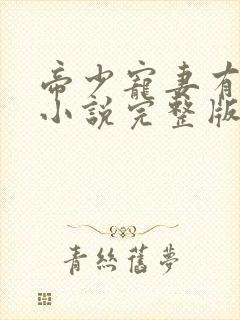 帝少寵妻有
小說完整版
青絲舊夢